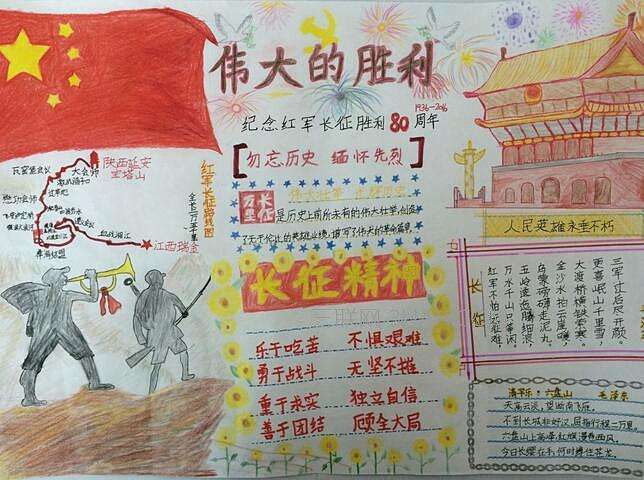 伟大的胜利
1936-2016
纪念红军长征胜利80周年
【勿忘历史 缅怀先烈】
红军长征路线图
全长二万五千里
陕西延安
宝塔山
瓦窑堡会议
大会师
懋功会师
江西瑞金
万里长征
是历史上前所未有的伟大壮举，创造
了无于伦比的英雄业绩，谱写了伟大的革命篇章。
长征精神
乐于吃苦 不惧艰难
勇于战斗 无坚不摧
重于求实 独立自信
善于团结 顾全大局
人民英雄永垂不朽
长征
红军不怕远征难，
万水千山只等闲。
五岭逶迤腾细浪，
乌蒙磅礴走泥丸。
金沙水拍云崖暖，
大渡桥横铁索寒。
更喜岷山千里雪，
三军过后尽开颜。
清平乐：六盘山 毛泽东
天高云淡，望断南飞雁。
不到长城非好汉，屈指行程二万里。
六盘山上高峰，红旗漫卷西风。
今日长缨在手，何时缚住苍龙。